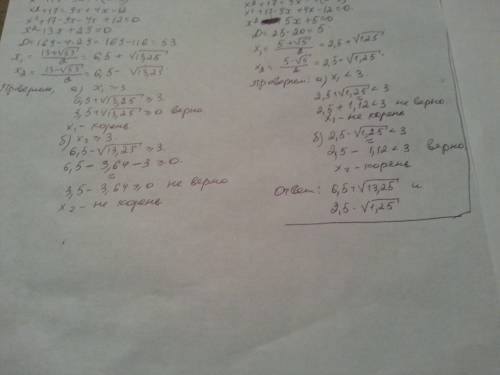 x²+17=9x+4x-12
x²+17-9x-4x+12=0
x²-13x+29=0
D=169-4·29=169-116=53
x₁=(13+√53)/2=6,5+√13,25
x₂=(13-√53)/2=6,5-√13,25
Проверяем, а) x₁≥3
6,5+√13,25≥3
3,5+√13,25≥0 верно
x₁-корень
б) x₂≥3
6,5-√13,25≥3
6,5-3,64-3≥0
3,5-3,64≥0 не верно
x₂-не корень
x²+17-9x+4x-12=0
x²-5x+5=0
D=25-20=5
x₁=(5+√5)/2=2,5+√1,25
x₂=(5-√5)/2=2,5-√1,25
Проверяем: а) x₁<3
2,5+√1,25<3
2,5+1,12<3 не верно
x₁-не корень
б) 2,5-√1,25<3
2,5-1,12<3 верно
x₂-корень
Ответ: 6,5+√13,25 и
2,5-√1,25